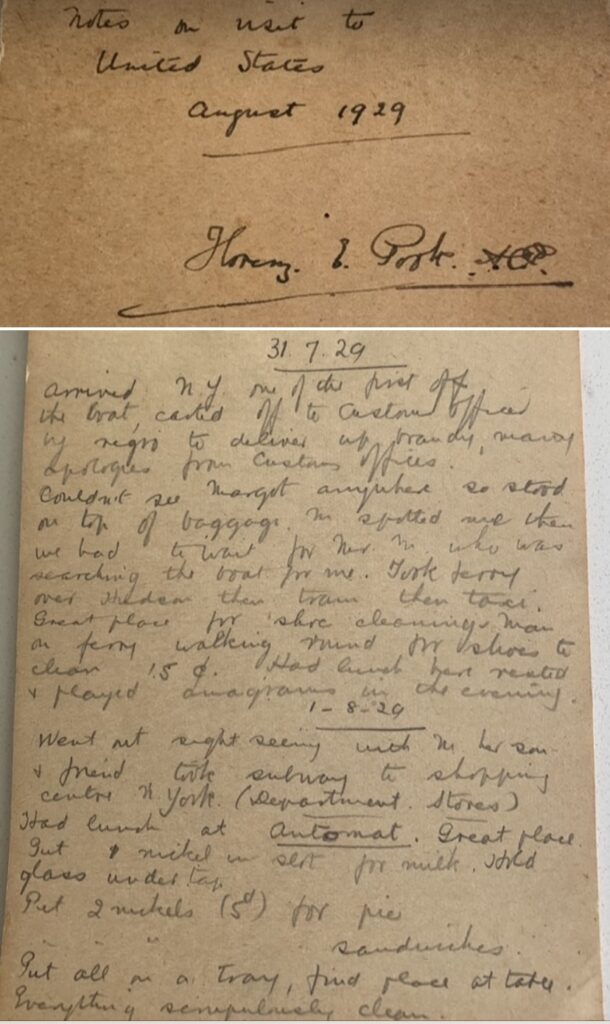 Notes on visit to
United States
August 1929
E.
31.7.29
arrived N Y. one of the first off
the boat, carted off to Customs Officer
by negro to deliver up brandy, many
apologies from Customs Officer.
Couldn't see Margot anywhere so stood
on top of baggage. M spotted me then
we had to wait for Mr. M. who was
searching the boat for me. Took ferry
over Hudson then train then taxi.
Great place for shoe cleaning. Man
on ferry walking round for shoes to
clean 15 ¢. Had lunch here rested
& played anagrams in the evening.
1-8-29
Went out sight seeing with M. her son
& friend took subway to shopping
centre N York. (Department Stores)
Had lunch at Automat. Great place.
Put 1 nickel in slot for milk. Hold
glass under tap
Put 2 nickels (5d) for pie
" " " sandwiches.
Put all on a tray, find place at table.
Everything scrupulously clean.